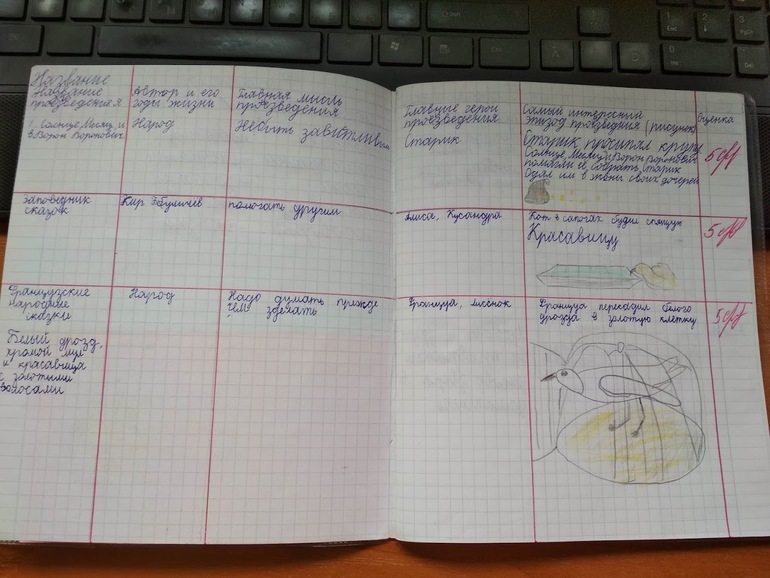 Название
Название
произведения
Автор и его
годы жизни
Главная мысль
произведения
Главные герои
произведения
Самый интересный
эпизод произведния (рисунок)
Оценка
1. Солнце, Месяц и
Ворон Воронович
Народ
Не быть завистливым
Старик
Старик просыпал крупу
Солнце Месяц и Ворон воронович
помогли её собрать Старик
Одал им в жены своих дочерей
5
заповедник
сказок
Кир Булычев
помогать другим
Алиса, Кусандра
Кот в сапогах будит спящую
Красавицу
5
Французские
народные
сказки
Белый дрозд,
хромой мул
и красавица
с золотыми
волосами
Народ
Надо думать прежде
чем зделать
Француа, лисенок
Француа пересадил белого
дрозда в золотую клетку
5